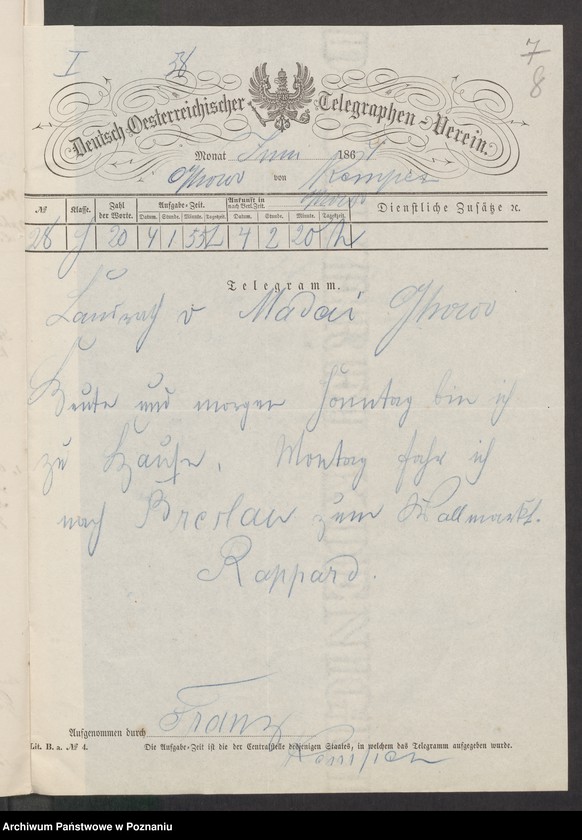 I 38 7
8
Deutsch-Oesterreichischer Telegraphen-Verein.
Monat Juni 186
von Kempen
№ Klasse. Zahl der Worte. Aufgabe-Zeit. Ankunft in nach Berl. Zeit. Dienstliche Zusätze ꝛc.
Datum. Stunde. Minute. Tageszeit. Datum. Stunde. Minute. Tageszeit.
28 20 4 1 55 4 2 20
Telegramm.
Landrath v Madai
Heute und morgen Sonntag bin ich
zu Hause. Montag fahr ich
nach Breslau zum Wollmarkt.
Rappard.
Aufgenommen durch Franz
Lit. B. a. № 4. Die Aufgabe-Zeit ist die der Centralstelle desjenigen Staates, in welchem das Telegramm aufgegeben wurde.
Kempen
Archiwum Państwowe w Poznaniu